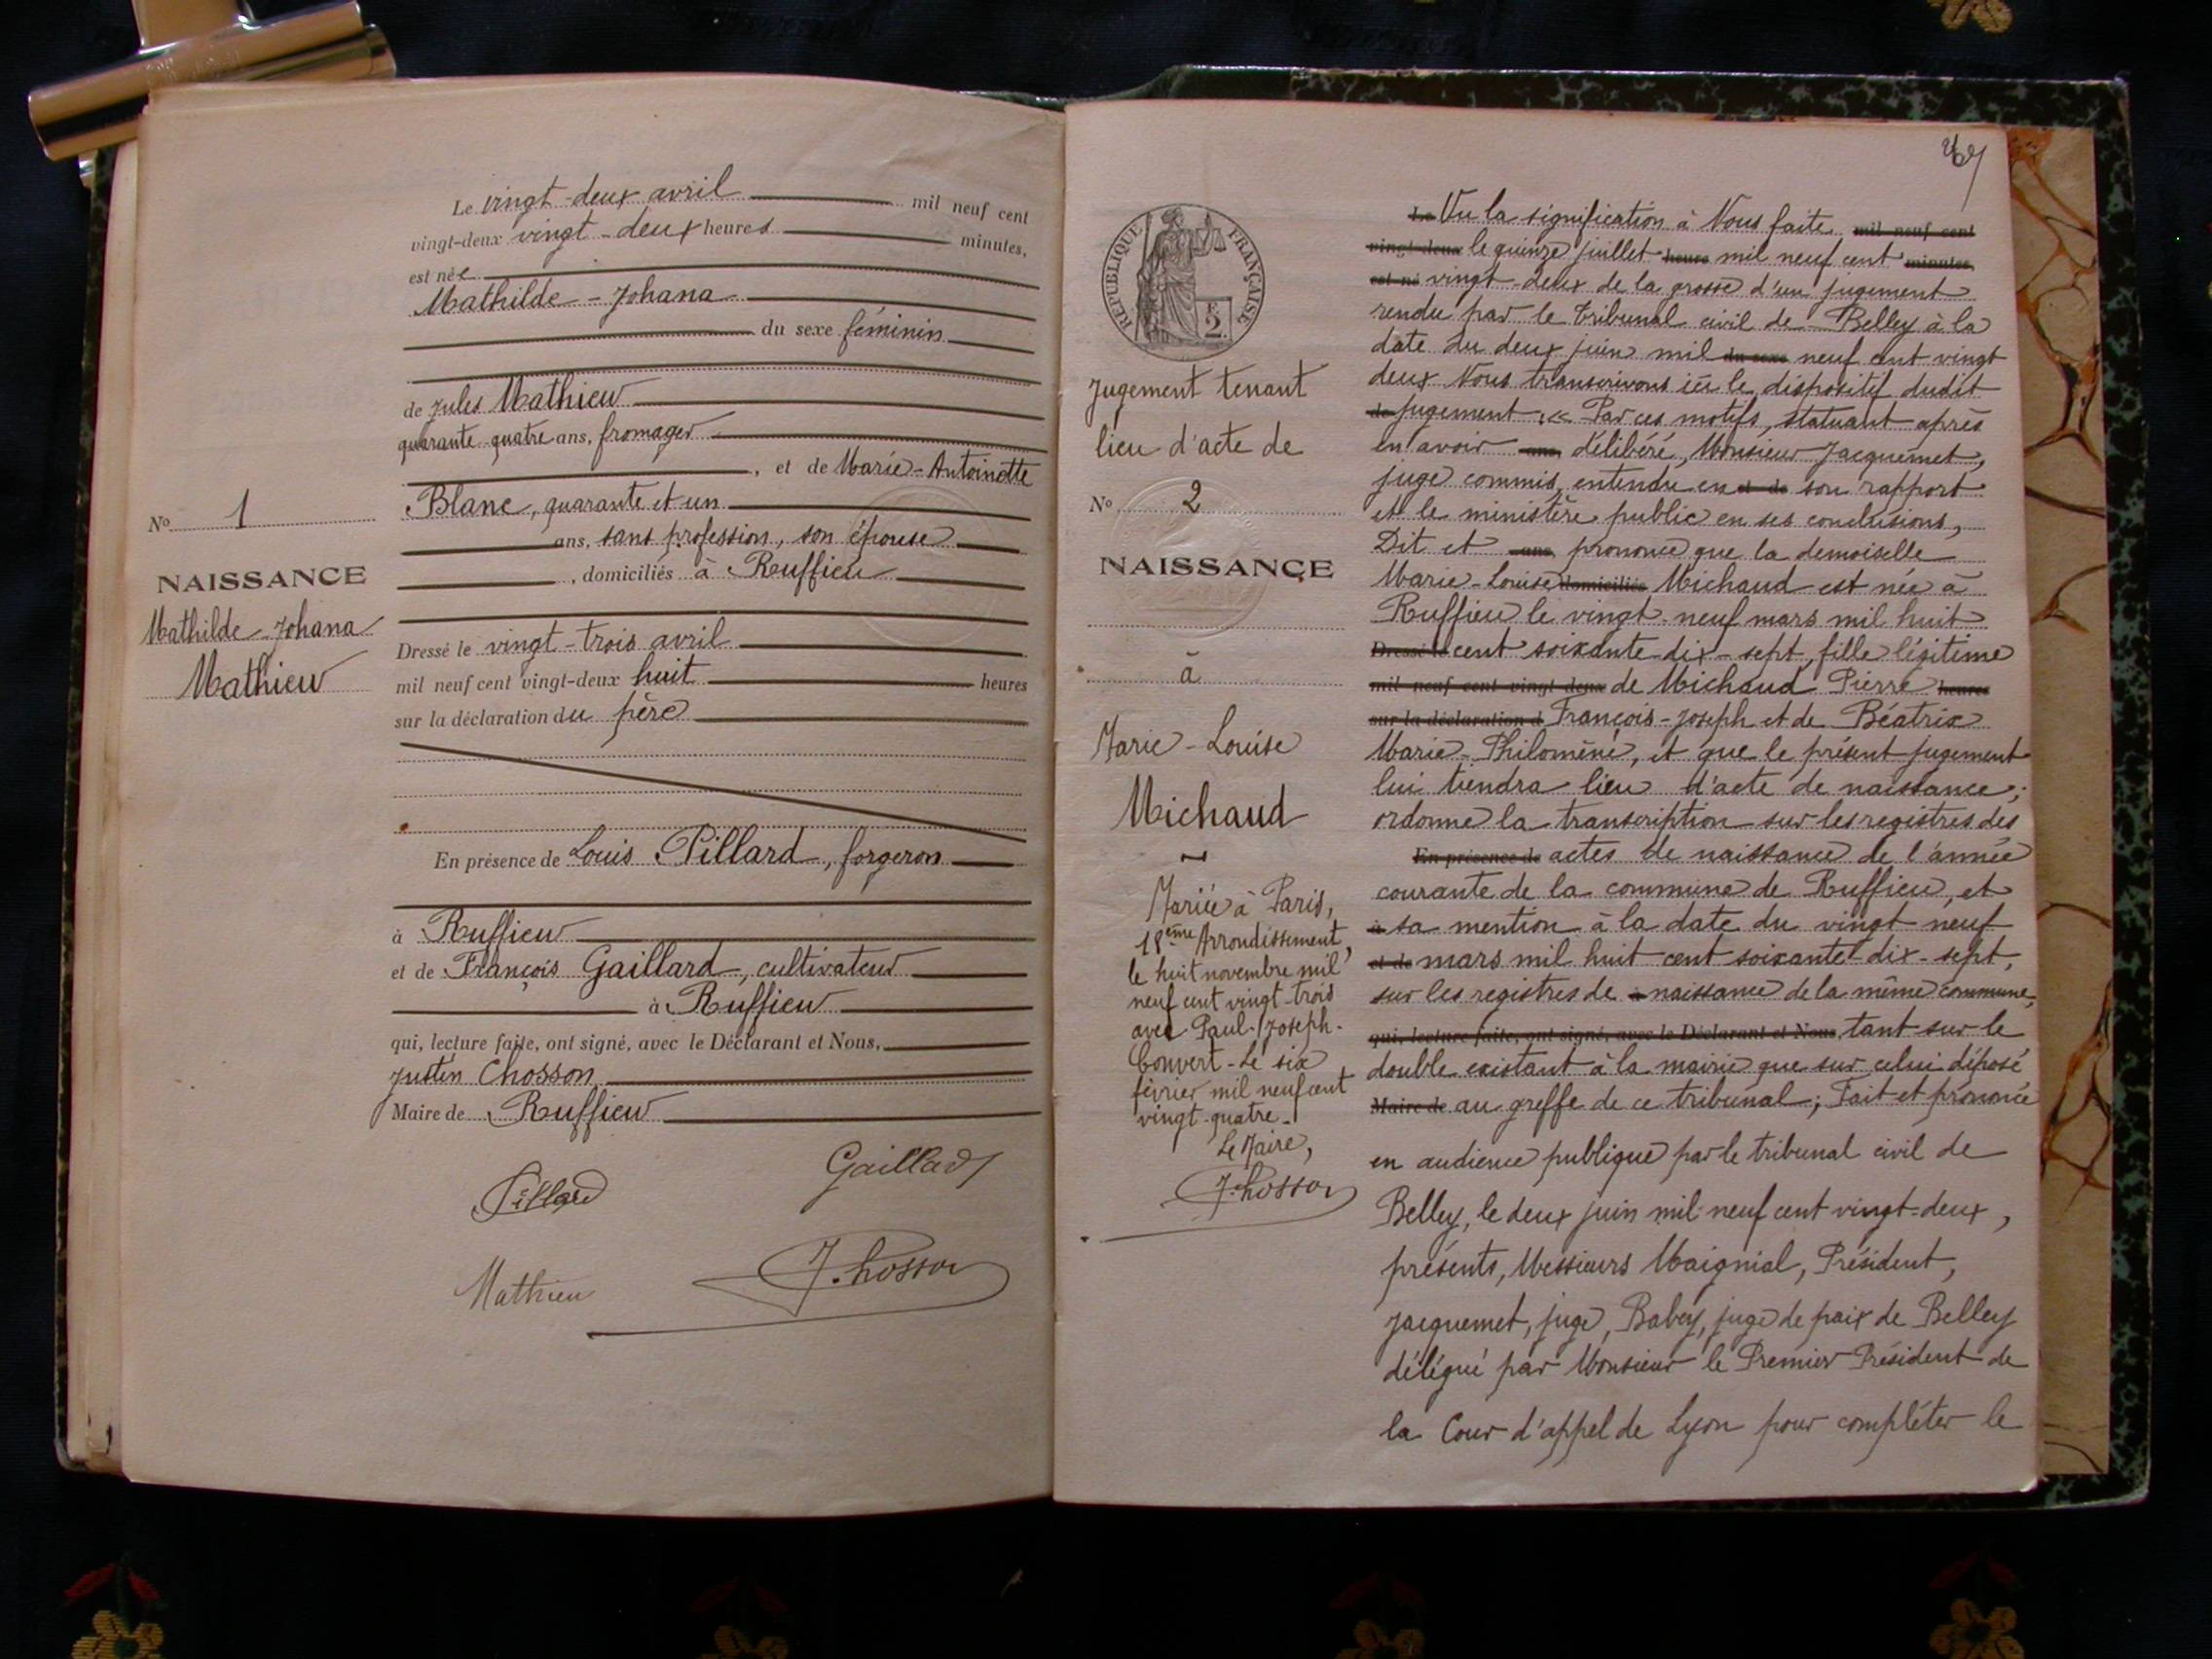 Le vingt-deux avril mil neuf cent
vingt-deux vingt-deux heures minutes,
est née
Mathilde-Johana
du sexe féminin
de Jules Mathieu
quarante-quatre ans, fromager
, et de Marie-Antoinette
Blanc, quarante et un
ans, sans profession, son épouse
, domiciliés à Ruffieu
Dressé le vingt-trois avril
mil neuf cent vingt-deux huit heures
sur la déclaration du père
En présence de Louis Pillard, forgeron
à Ruffieu
et de François Gaillard, cultivateur
à Ruffieu
qui, lecture faite, ont signé, avec le Déclarant et Nous,
Justin Chosson
Maire de Ruffieu
Pillard
Gaillard
Mathieu
J. Chosson
No 1
NAISSANCE
Mathilde-Johana
Mathieu
RÉPUBLIQUE FRANÇAISE
2
Jugement tenant
lieu d'acte de
No 2
NAISSANCE
à
Marie-Louise
Michaud
Mariée à Paris,
18ème Arrondissement,
le huit novembre mil
neuf cent vingt-trois
avec Paul-Joseph-
Convert-Le six
février mil neuf cent
vingt-quatre-
Le Maire,
J. Chosson
Le Vu la signification à Nous faite mil neuf cent
vingt-deux le quinze juillet heure mil neuf cent minutes,
est né vingt-deux de la grosse d'un jugement
rendu par le tribunal civil de Belley à la
date du deux juin mil du sexe neuf cent vingt
deux Nous transcrivons ici le dispositif dudit
de jugement : « Par ces motifs, statuant après
en avoir ans, délibéré, Monsieur Jacquemet,
juge commis, entendu en et de son rapport
et le ministère public en ses conclusions,
Dit et ans, prononce que la demoiselle
Marie-Louise domiciliés Michaud est née à
Ruffieu le vingt-neuf mars mil huit
Dressé le cent soixante-dix-sept, fille légitime
mil neuf cent vingt-deux de Michaud Pierre heures
sur la déclaration d François-Joseph et de Béatrix
Marie-Philomène, et que le présent jugement
lui tiendra lieu d'acte de naissance ;
ordonne la transcription sur les registres des
En présence de actes de naissance de l'année
courante de la commune de Ruffieu, et
à sa mention à la date du vingt neuf
et de mars mil huit cent soixante-dix-sept,
sur les registres de à naissance de la même commune,
qui, lecture faite, ont signé, avec le Déclarant et Nous, tant sur le
double existant à la mairie que sur celui déposé
Maire de au greffe de ce tribunal ; Fait et prononcé
en audience publique par le tribunal civil de
Belley, le deux juin mil neuf cent vingt-deux,
présents, Messieurs Maignial, Président,
Jacquemet, juge, Babey, juge de paix de Belley
délégué par Monsieur le Premier Président de
la Cour d'appel de Lyon pour compléter le